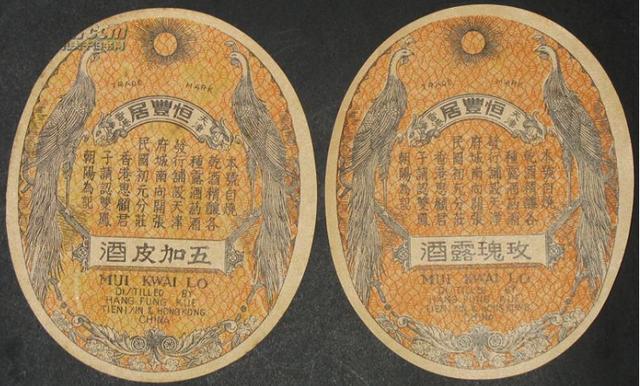 TRADE MARK
恒豐居
本號自燒
乾酒精釀各
種露酒葯酒
發行舖設天津
府城南向開張
民國初元分莊
香港思顧君
子請認雙鳳
朝陽為記
五加皮酒
MUI KWAI LO
DISTILLED BY
HANG FUNG KUE
TIENTSIN & HONGKONG
CHINA
TRADE MARK
恒豐居
本號自燒
乾酒精釀各
種露酒葯酒
發行舖設天津
府城南向開張
民國初元分莊
香港思顧君
子請認雙鳳
朝陽為記
玫瑰露酒
MUI KWAI LO
DISTILLED BY
HANG FUNG KUE
TIENTSIN & HONGKONG
CHINA